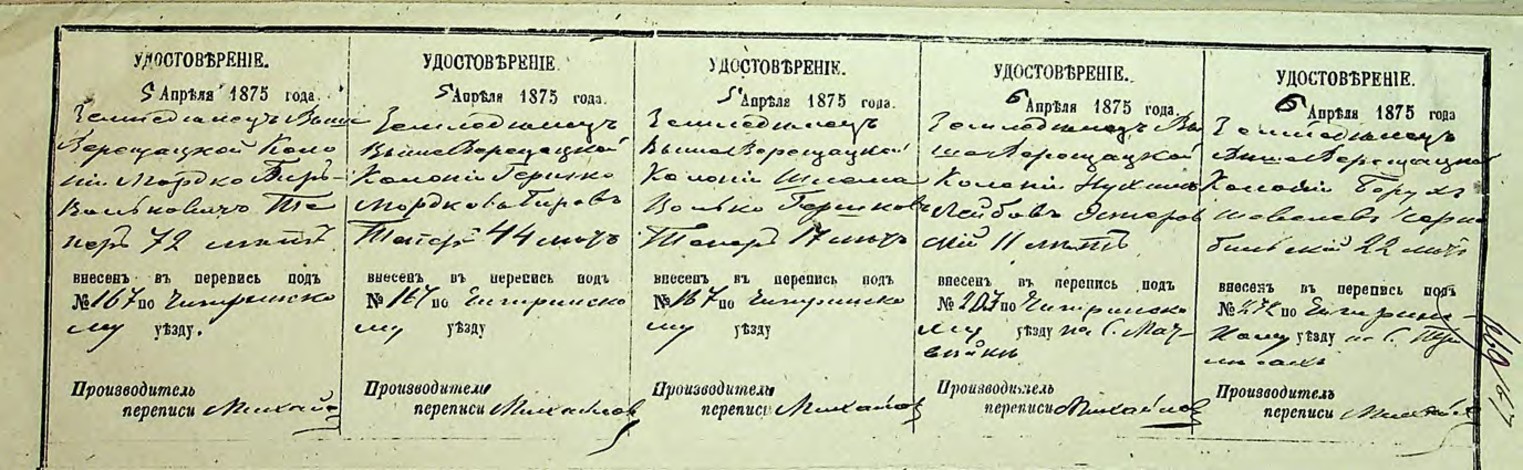 УДОСТОВѢРЕНІЕ.
5 Апрѣля 1875 года.
Земледѣлецъ Выше
Верещацкой Коло
ніи Мордко Беръ-
Вольковичъ Те
перъ 72 лѣтъ
внесенъ въ перепись подъ
№ 167 по Чигиринско
му уѣзду.
Производитель
переписи Михайлов
УДОСТОВѢРЕНІЕ.
5 Апрѣля 1875 года.
Земледѣлецъ
Выше Верещацкой
Колоніи Гершко
Мордковъ Беровъ
44 лѣтъ
внесенъ въ перепись подъ
№ 167 по Чигиринско
му уѣзду
Производитель
переписи Михайлов
УДОСТОВѢРЕНІЕ.
5 Апрѣля 1875 года.
Земледѣлецъ
Выше Верещацкой
Колоніи Шлема
Волько Гершковъ
17 лѣтъ
внесенъ въ перепись подъ
№ 167 по Чигиринско
му уѣзду
Производитель
переписи Михайлов
УДОСТОВѢРЕНІЕ.
6 Апрѣля 1875 года.
Земледѣлецъ Вы
ше Верещацкой
Колоніи Нухимъ
Лейбовъ Остров
скій 11 лѣтъ
внесенъ въ перепись подъ
№ 207 по Чигиринско
му уѣзду на С. Мат
вѣйки
Производитель
переписи Михайлов
УДОСТОВѢРЕНІЕ.
6 Апрѣля 1875 года.
Земледѣлецъ
Выше Верещацкой
Колоніи Борухъ
Шевелевъ Черно
быльскій 22 лѣтъ
внесенъ въ перепись подъ
№ 272 по Чигиринс-
кому уѣзду на С.
Производитель
переписи Михайлов